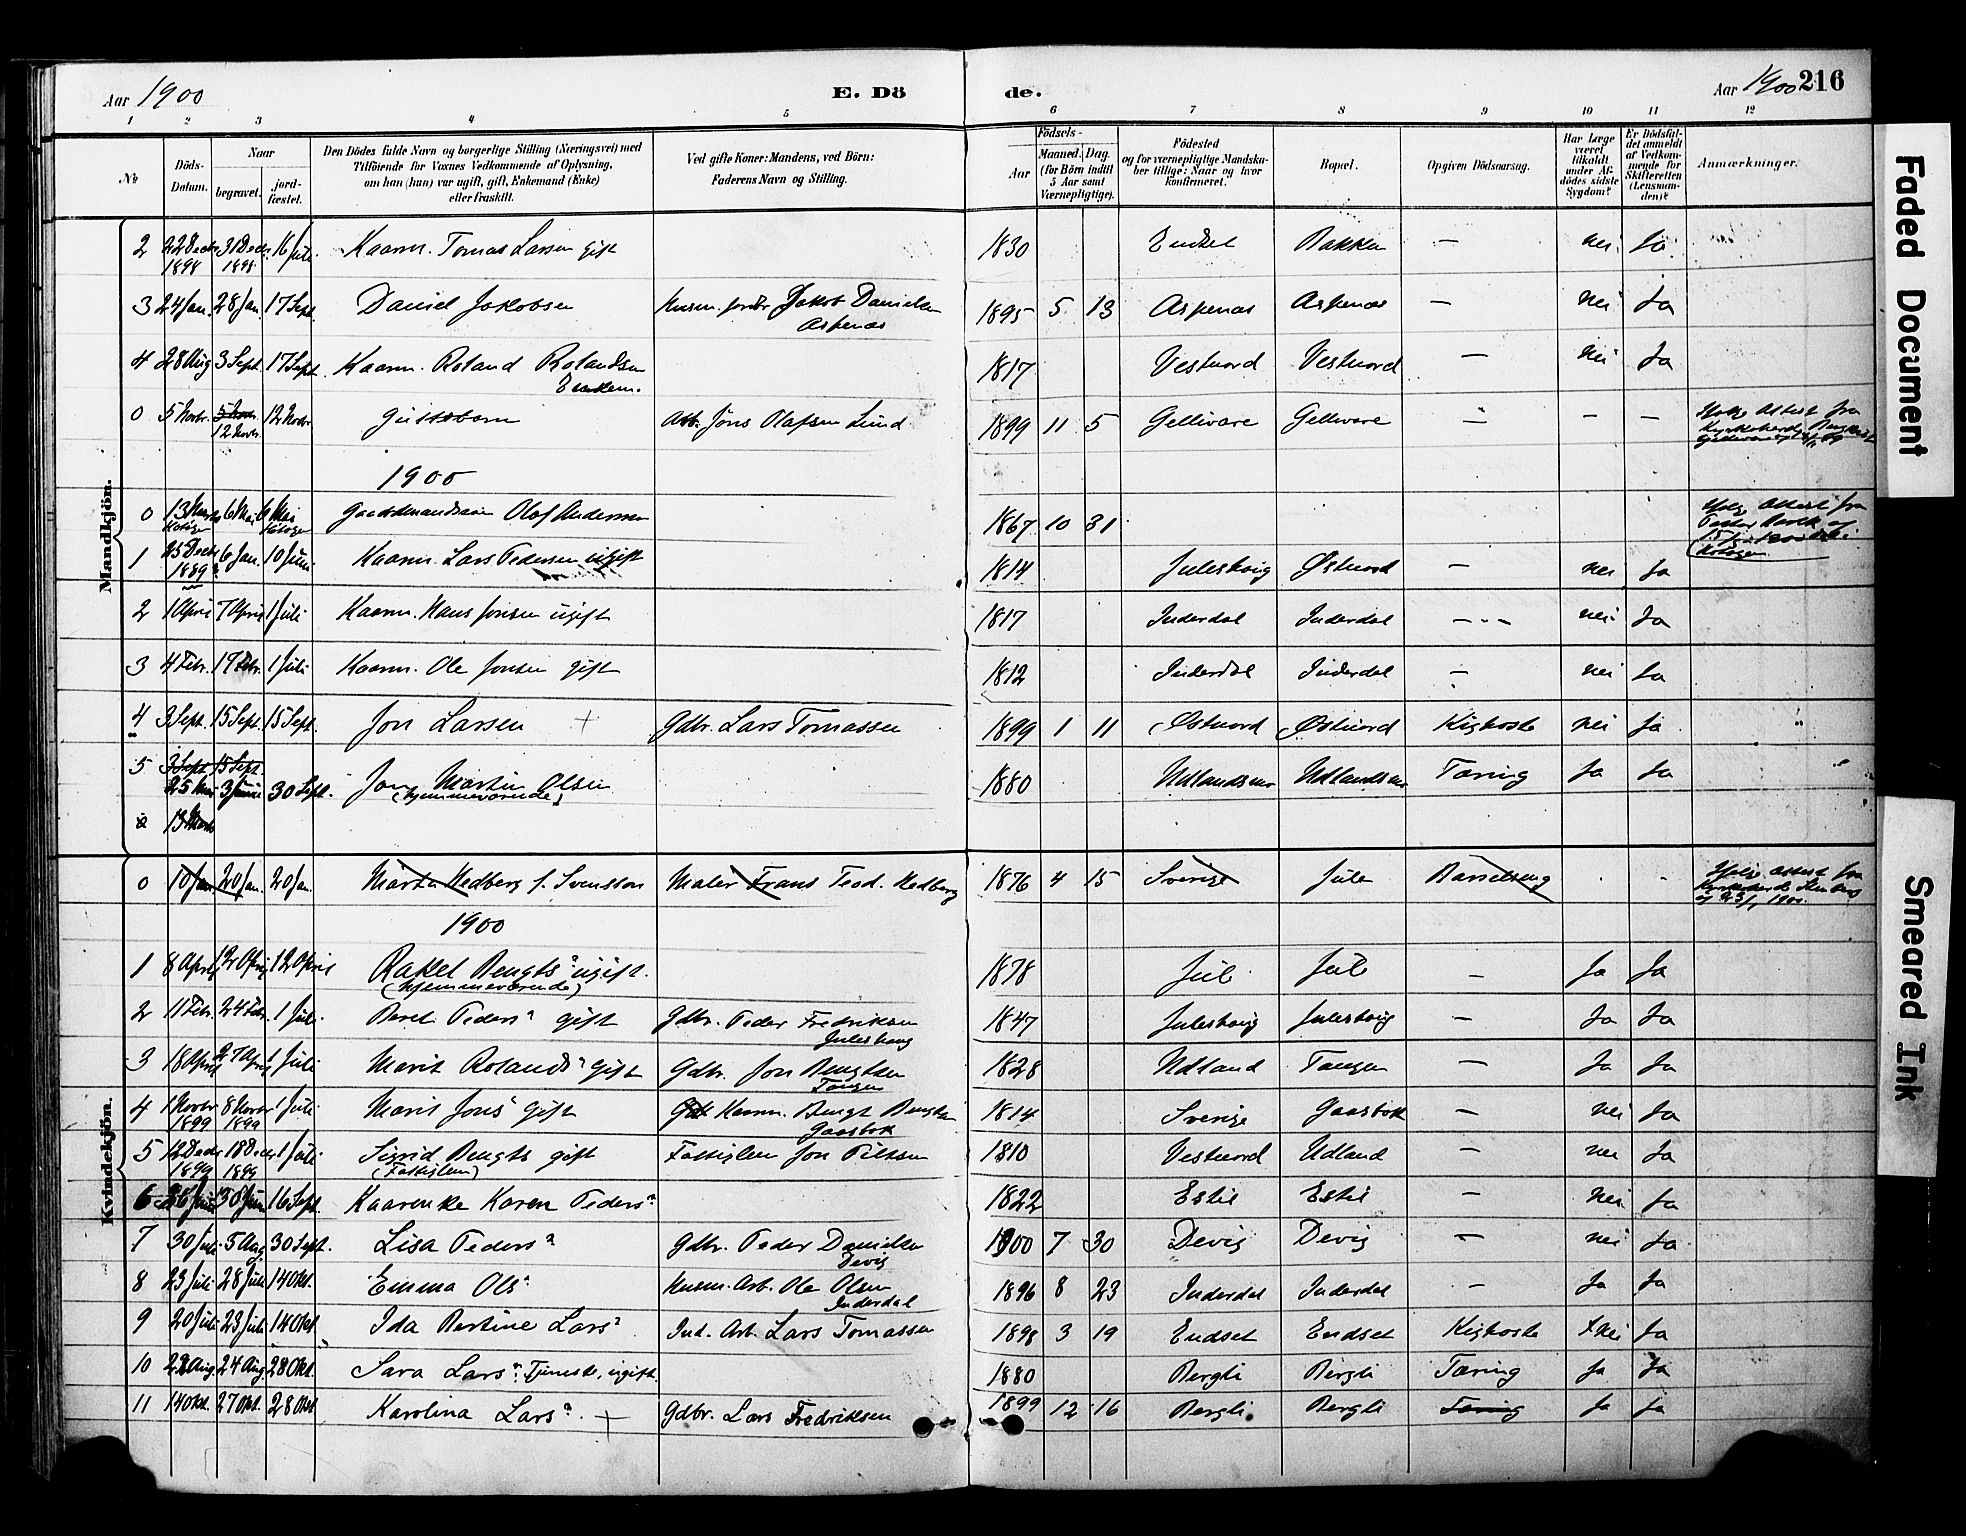 Aar 1900
E. Dö
de.
Aar 1900 216
1 2 3 4 5 6 7 8 9 10 11 12
№ Döds-Datum. Naar begravet. jord-fæstet. Den Dödes fulde Navn og borgerlige Stilling (Næringsvei) med Tilföiende for Voxnes Vedkommende af Oplysning, om han (hun) var ugift, gift, Enkemand (Enke) eller fraskilt. Ved gifte Koner: Mandens, ved Börn: Faderens Navn og Stilling. Födsels- Aar Maaned. Dag. (for Börn indtil 5 Aar samt Værnepligtige). Födested og for værnepligtige Mandskaber tillige: Naar og hvor konfirmeret. Bopæl. Opgiven Dödsaarsag. Har Læge været tilkaldt under Afdödes sidste Sygdom? Er Dödsfaldet anmeldt af Vedkommende for Skifteretten (Lensmanden)? Anmærkninger.
Mandkjön.
2 22 Decbr. 1898 31 Decbr. 1898 16 Juli. Kaarm. Tomas Larsen gift 1830 Endset Bakken — nei Ja
3 24 Jan. 28 Jan. 17 Sept. Daniel Jakobsen Husm. Jakob Danielsen Aspenæs 1895 5 13 Aspenæs Aspenæs — nei Ja
4 28 Aug 3 Sept. 17 Sept. Kaarm. Roland Rolandsen Enkem. 1817 Vestnord Vestnord — nei Ja
0 5 Novbr. 5 Novbr. 12 Novbr. 12 Novbr Guttebarn Arb. Jöns Olafsen Lund 1899 11 5 Gellivare Gellivare — — — Ifölge Attest fra Kyrkoherde Gellivare
1900
0 13 Marts 6 Mai 6 Mai Gaardmandssön Olof Andersen 1867 10 31 Ifölge Attest fra Pastor
1 25 Decbr. 1889? 6 Jan. 10 Juni Kaarm. Lars Pedersen ugift 1814 Juleshoug Østnord — nei Ja
2 1 April 7 April 1 Juli Kaarm. Hans Jonsen ugift 1817 Inderdal Inderdal — nei Ja
3 4 Febr. 17 Febr. 1 Juli Kaarm. Ole Jonsen gift 1812 Inderdal Inderdal — nei Ja
4 3 Sept. 15 Sept. 15 Sept. Jon Larsen + Gdbr. Lars Tomassen 1899 1 11 Østnord Østnord Kighoste nei Ja
5 3 Sept 15 Sept. 25 Mai 3 Juni 30 Sept. Jon Martin Olsen (hjemmeværende) 1880 Udlandsmo Udlandsmo Tæring Ja Ja
13 Marts
Kvindekjön.
0 10 Jan. 20 Jan. 20 Jan. Märta Hedberg f. Svensson Maler Frans Teod. Hedberg 1876 4 15 Sverige Jule Barselseng Ifölge Attest fra Kyrkoherde af 23/1 1900.
1900
1 8 April 12 April 12 April Rakel Bengtsᵃ ugift. (hjemmeværende) 1878 Jule Jule — Ja Ja
2 11 Febr. 24 Febr. 1 Juli Beret Pedersᵃ gift Gdbr. Peder Fredriksen Juleshoug 1847 Juleshoug Juleshoug — Ja Ja
3 18 April 27 April 1 Juli Marit Rolandsᵃ gift Gdbr. Jon Bengtsen Tangen 1828 Udland Tangen — Ja Ja
4 1 Novbr 1899 8 Novbr 1899 1 Juli Marit Jonsᵃ gift Gdb Kaarm. Bengt Bengtsen Gaasbak 1814 Sverige Gaasbak — nei Ja
5 12 Decbr. 1899 18 Decbr. 1899 1 Juli Sigrid Bengts gift (Fattiglem) Fattiglem Jon 1810 Vestnord Udland — nei Ja
6 26 Juni 30 Juni 16 Sept. Kaarenke Karen Pedersᵃ 1822 Estil Estil — nei Ja
7 30 Juli 5 Aug 30 Sept. Lisa Pedersᵃ Gdbr. Peder Danielsen Devig 1900 7 30 Devig Devig — nei Ja
8 23 Juli 28 Juli 14 Okt. Emma Olsᵃ Husm. Arb. Ole Olsen Inderdal 1896 8 23 Inderdal Inderdal — Ja Ja
9 20 Juli 23 Juli 14 Okt. Ida Bertine Larsᵃ Ind. Arb. Lars Tomassen 1898 3 19 Endset Endset Kighoste nei Ja
10 22 Aug. 24 Aug. 28 Okt. Sara Larsᵃ Tjeneste, ugift 1880 Bergli Bergli Tæring Ja Ja
11 14 Okt. 27 Okt. 28 Okt Karolina Larsᵃ + Gdbr. Lars Fredriksen 1899 12 16 Bergli Bergli Tæring Ja Ja
Faded Document
Smeared Ink